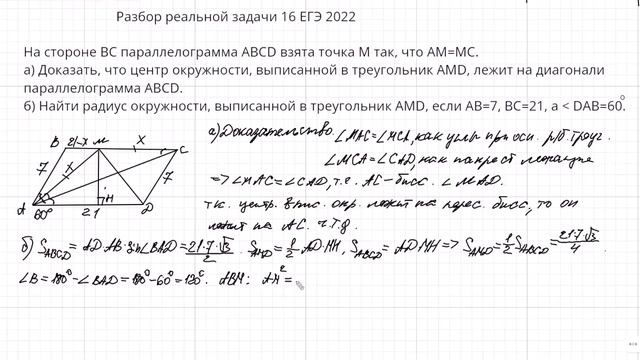 Разбор реальной задачи 16 ЕГЭ 2022
На стороне BC параллелограмма ABCD взята точка M так, что AM=MC.
а) Доказать, что центр окружности, выписанной в треугольник AMD, лежит на диагонали
параллелограмма ABCD.
б) Найти радиус окружности, выписанной в треугольник AMD, если AB=7, BC=21, а < DAB=60°.
а) Доказательство. ∠MAC=∠MCA, как углы при осн. р/б. треуг.
∠MCA=∠CAD, как накрест лежащие
=> ∠MAC=∠CAD, т.е. AC - бисс. ∠MAD.
т.к. центр. впис. окр. лежит на перес. бисс, то он
лежит на AC. ч.т.д.
B 21-x M x C
7 x 7
H
A 60° 21 D
б) S_ABCD = AD·AB·sin∠BAD = 21·7·√3/2. S_AMD = 1/2 AD·MH, S_ABCD = AD·MH => S_AMD = 1/2 S_ABCD = 21·7·√3/4.
∠B = 180° - ∠BAD = 180° - 60° = 120°. ABM: AM² =